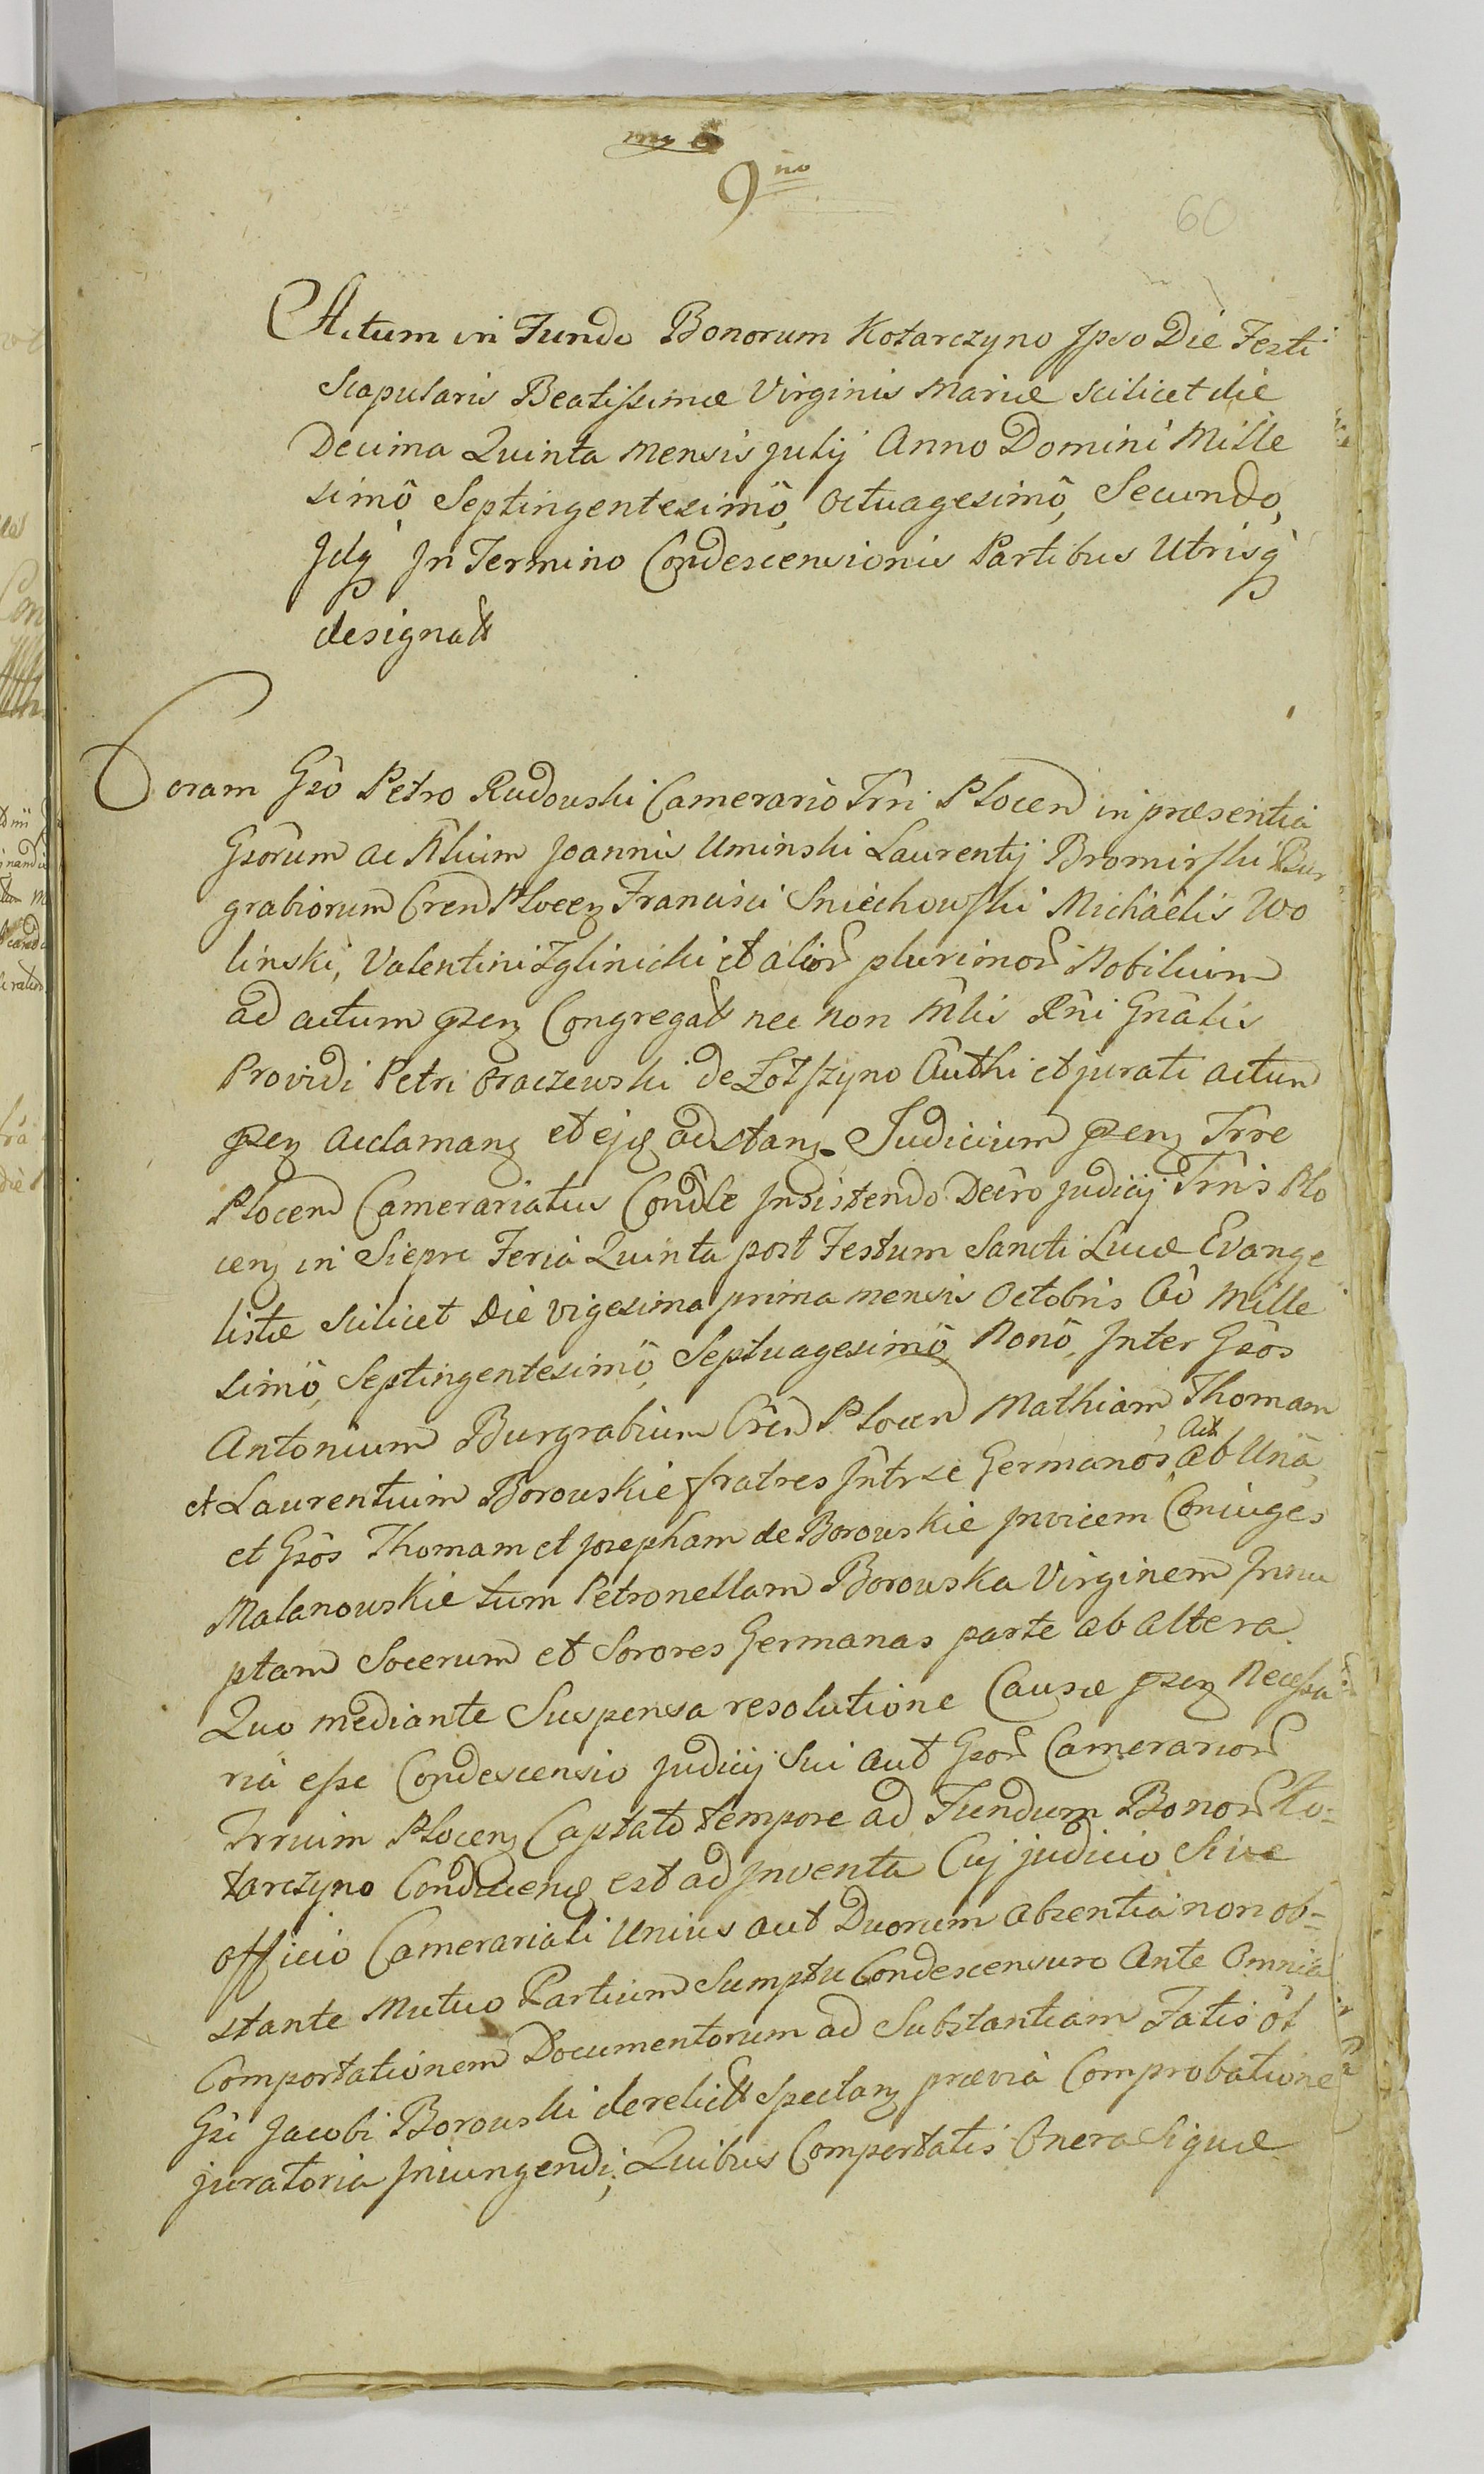 9no
60
Actum in Fundo Bonorum Kotarczyno Jpso Die Festi
Scapularis Beatissimæ Virginis Mariæ scilicet die
Decima Quinta Mensis Julij Anno Domini Mille
simô Septingentesimô, Octuagesimô, Secundo,
Jdq Jn Termino Condescensionis Partibus Utrisq
designatt
Coram Gsô Petro Rudowski Camerario Trri Plocen in præsentia
Gsôrum ac Nlium Joannis Uminski Laurentij Bromirski Bur
grabiorum Cren Plocen Francisci Sniechowski Michaëlis Wo
linski, Valentini Zglinicki et alior plurimor Nobilium
ad actum psen Congregatt nec non Mlis Rni Gnâlis
Providi Petri Graczewski de Authi et jurati actum
psen acclaman et ejq adstan. Judicium psen Trre
Plocen Camerariatus Condle Jnsistendo Decro judicij Trris Plo
cen in Siepre Feria Quinta post Festum Sancti Lucæ Evange
listæ scilicet Die vigesima prima mensis Octobris Aô Mille
simô, Septingentesimô, Septuagesimô, Nonô, Jnter Gsôs
Antonium Burgrabium Cren Plocen Mathiam Thomam
Act
et Laurentium Borowskie fratres Jntr se Germanos, ab Unâ,
et Gsôs Thomam et Josepham de Borowskie Jnvicem Coniuges
Malanowskie tum Petronellam Borowska Virginem Jnnu
ptam Socerum et Sorores Germanas parte ab altera
Quo mediante Suspensa resolutione Causæ psen Necessa
ria esse Condescensio judicij Sui aut Gsor Camerarior
Trrium Plocen Captato tempore ad Fundum Bonor Ko-
tarczyno Conducens est adJnventa Cuj judicio Sive
officio Camerariali Unius aut Duorum absentia non ob-
stante Mutuo Partium Sumptu Condescensuro Ante Omnia
Comportationem Documentorum ad Substantiam Fatis ol
Gsi Jacobi Borowski derelictt spectan prævia Comprobatione
juratoria Jniungendi, Quibus Comportatis Onera Siquæ